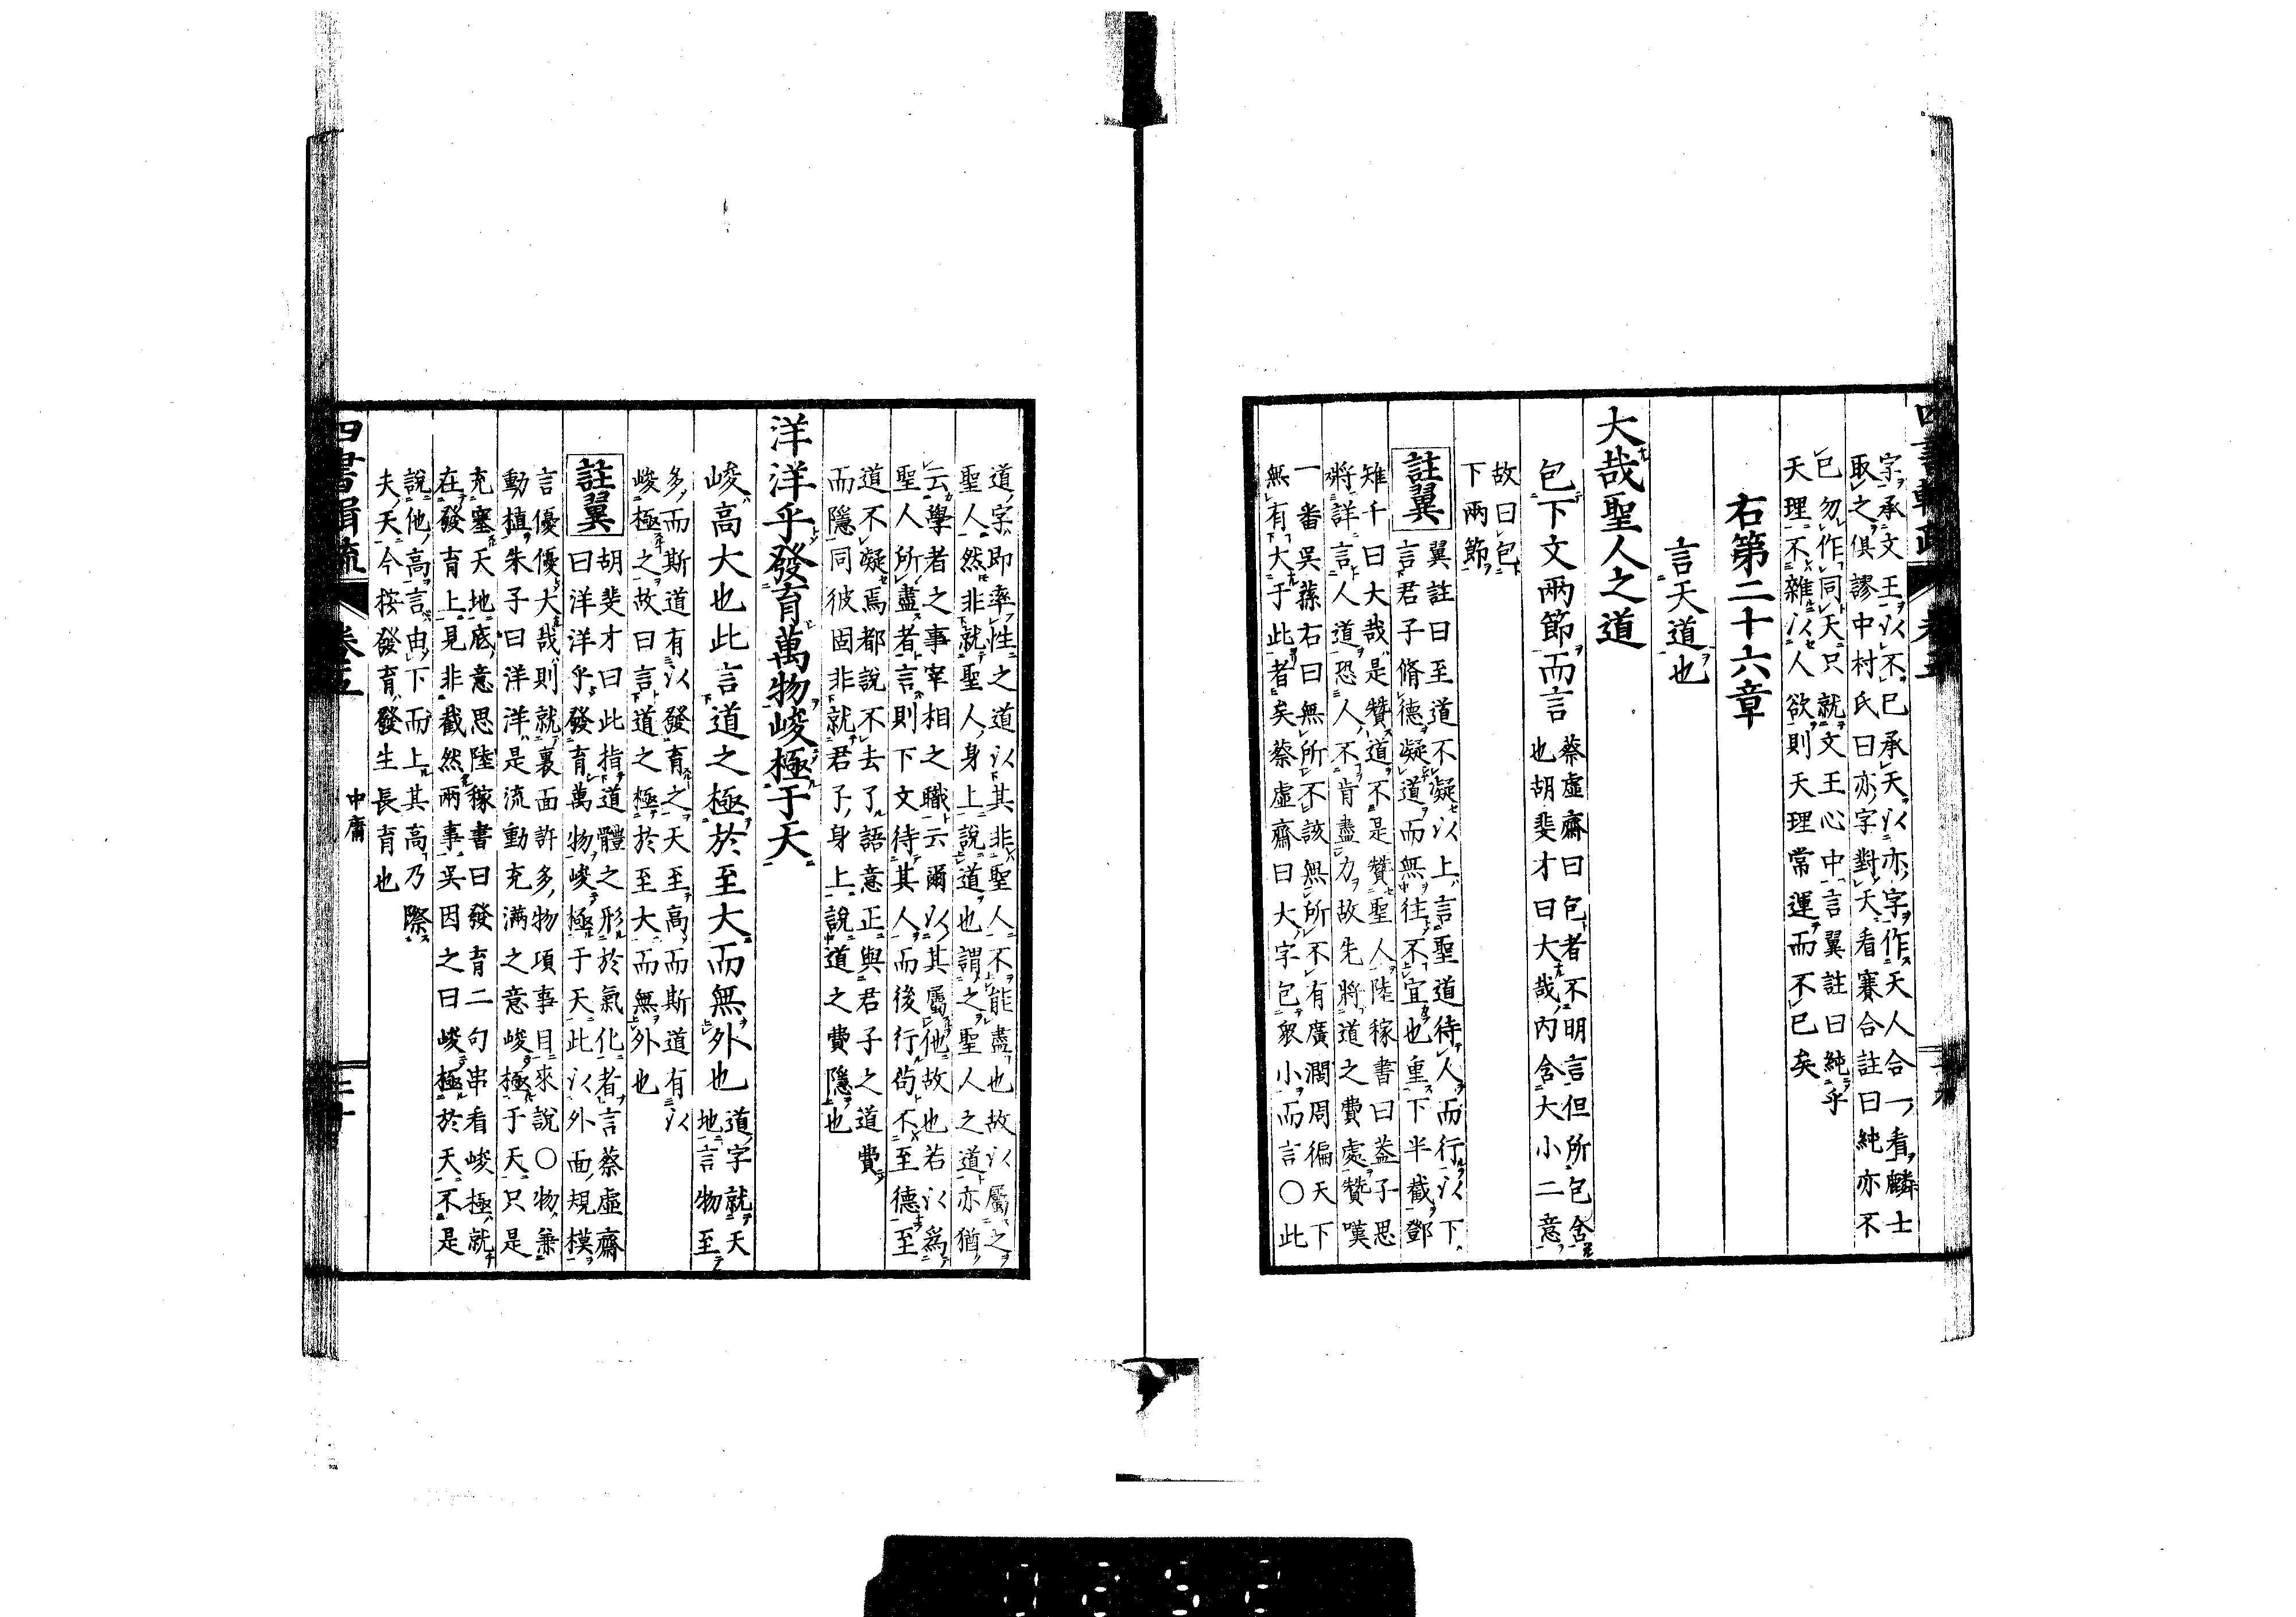 字承文王以不已承天以亦字作天人合一看麟士
取之俱謬中村氏曰亦字對天看賽合註曰純亦不
已勿作同天只就文王心中言翼註曰純乎
天理不雜以人欲則天理常運而不已矣
右第二十六章
言天道也
大哉聖人之道
包下文兩節而言
蔡虛齋曰包者不明言但所包含
也胡斐才曰大哉內含大小二意
故曰包
下兩節
註翼
翼註曰至道不凝以上言聖道待人而行以下
言君子脩德凝道而無往不宜也重下半截鄧
雉千曰大哉是贊道不是贊聖人陸稼書曰蓋子思
將詳言人道恐人不肯盡力故先將道之費處贊嘆
一番吳蓀右曰無所不該無所不有廣濶周徧天下
無有大于此者矣蔡虛齋曰大字包眾小而言○此
道字即率性之道以其非聖人不能盡也故以屬之
聖人然非就聖人身上說道也謂之聖人之道亦猶
云學者之事宰相之職云爾以其屬他故也若以爲
聖人所盡者言則下文待其人而後行苟不至德至
道不凝焉都說不去了語意正與君子之道費
而隱同彼固非就君子身上說道之費隱也
洋洋乎發育萬物峻極于天
峻高大也此言道之極於至大而無外也
道字就天
地言物至
多而斯道有以發育之天至高而斯道有以
峻極之故曰言道之極於至大而無外也
註翼
胡斐才曰此指道體之形於氣化者言蔡虛齋
曰洋洋乎發育萬物峻極于天此以外面規模
言優優大哉則就裏面許多物項事目來說○物兼
動植朱子曰洋洋是流動充滿之意峻極于天只是
充塞天地底意思陸稼書曰發育二句串看峻極就
在發育上見非截然兩事吳因之曰峻極於天不是
說他高言由下而上其高乃際
夫天今按發育發生長育也
四書輯疏
卷五
中庸